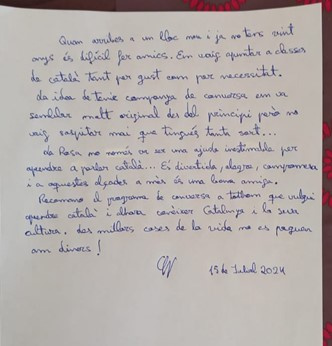 Quan arribes a un lloc nou i ja no tens vint
anys és difícil fer amics. Em vaig apuntar a classes
de català tant per gust com per necessitat.
La idea de tenir companya de conversa em va
semblar molt original des del principi però no
vaig sospitar mai que tingués tanta sort...
La Rosa no només va ser una ajuda inestimable per
aprendre a parlar català... És divertida, alegre, compromesa
i a aquestes alçades a més és una bona amiga.
Recomano el programa de conversa a tothom que vulgui
aprendre català i alhora conèixer Catalunya i la seva
cultura. Les millors coses de la vida no es paguen
amb diners!
15 de Juliol 2024